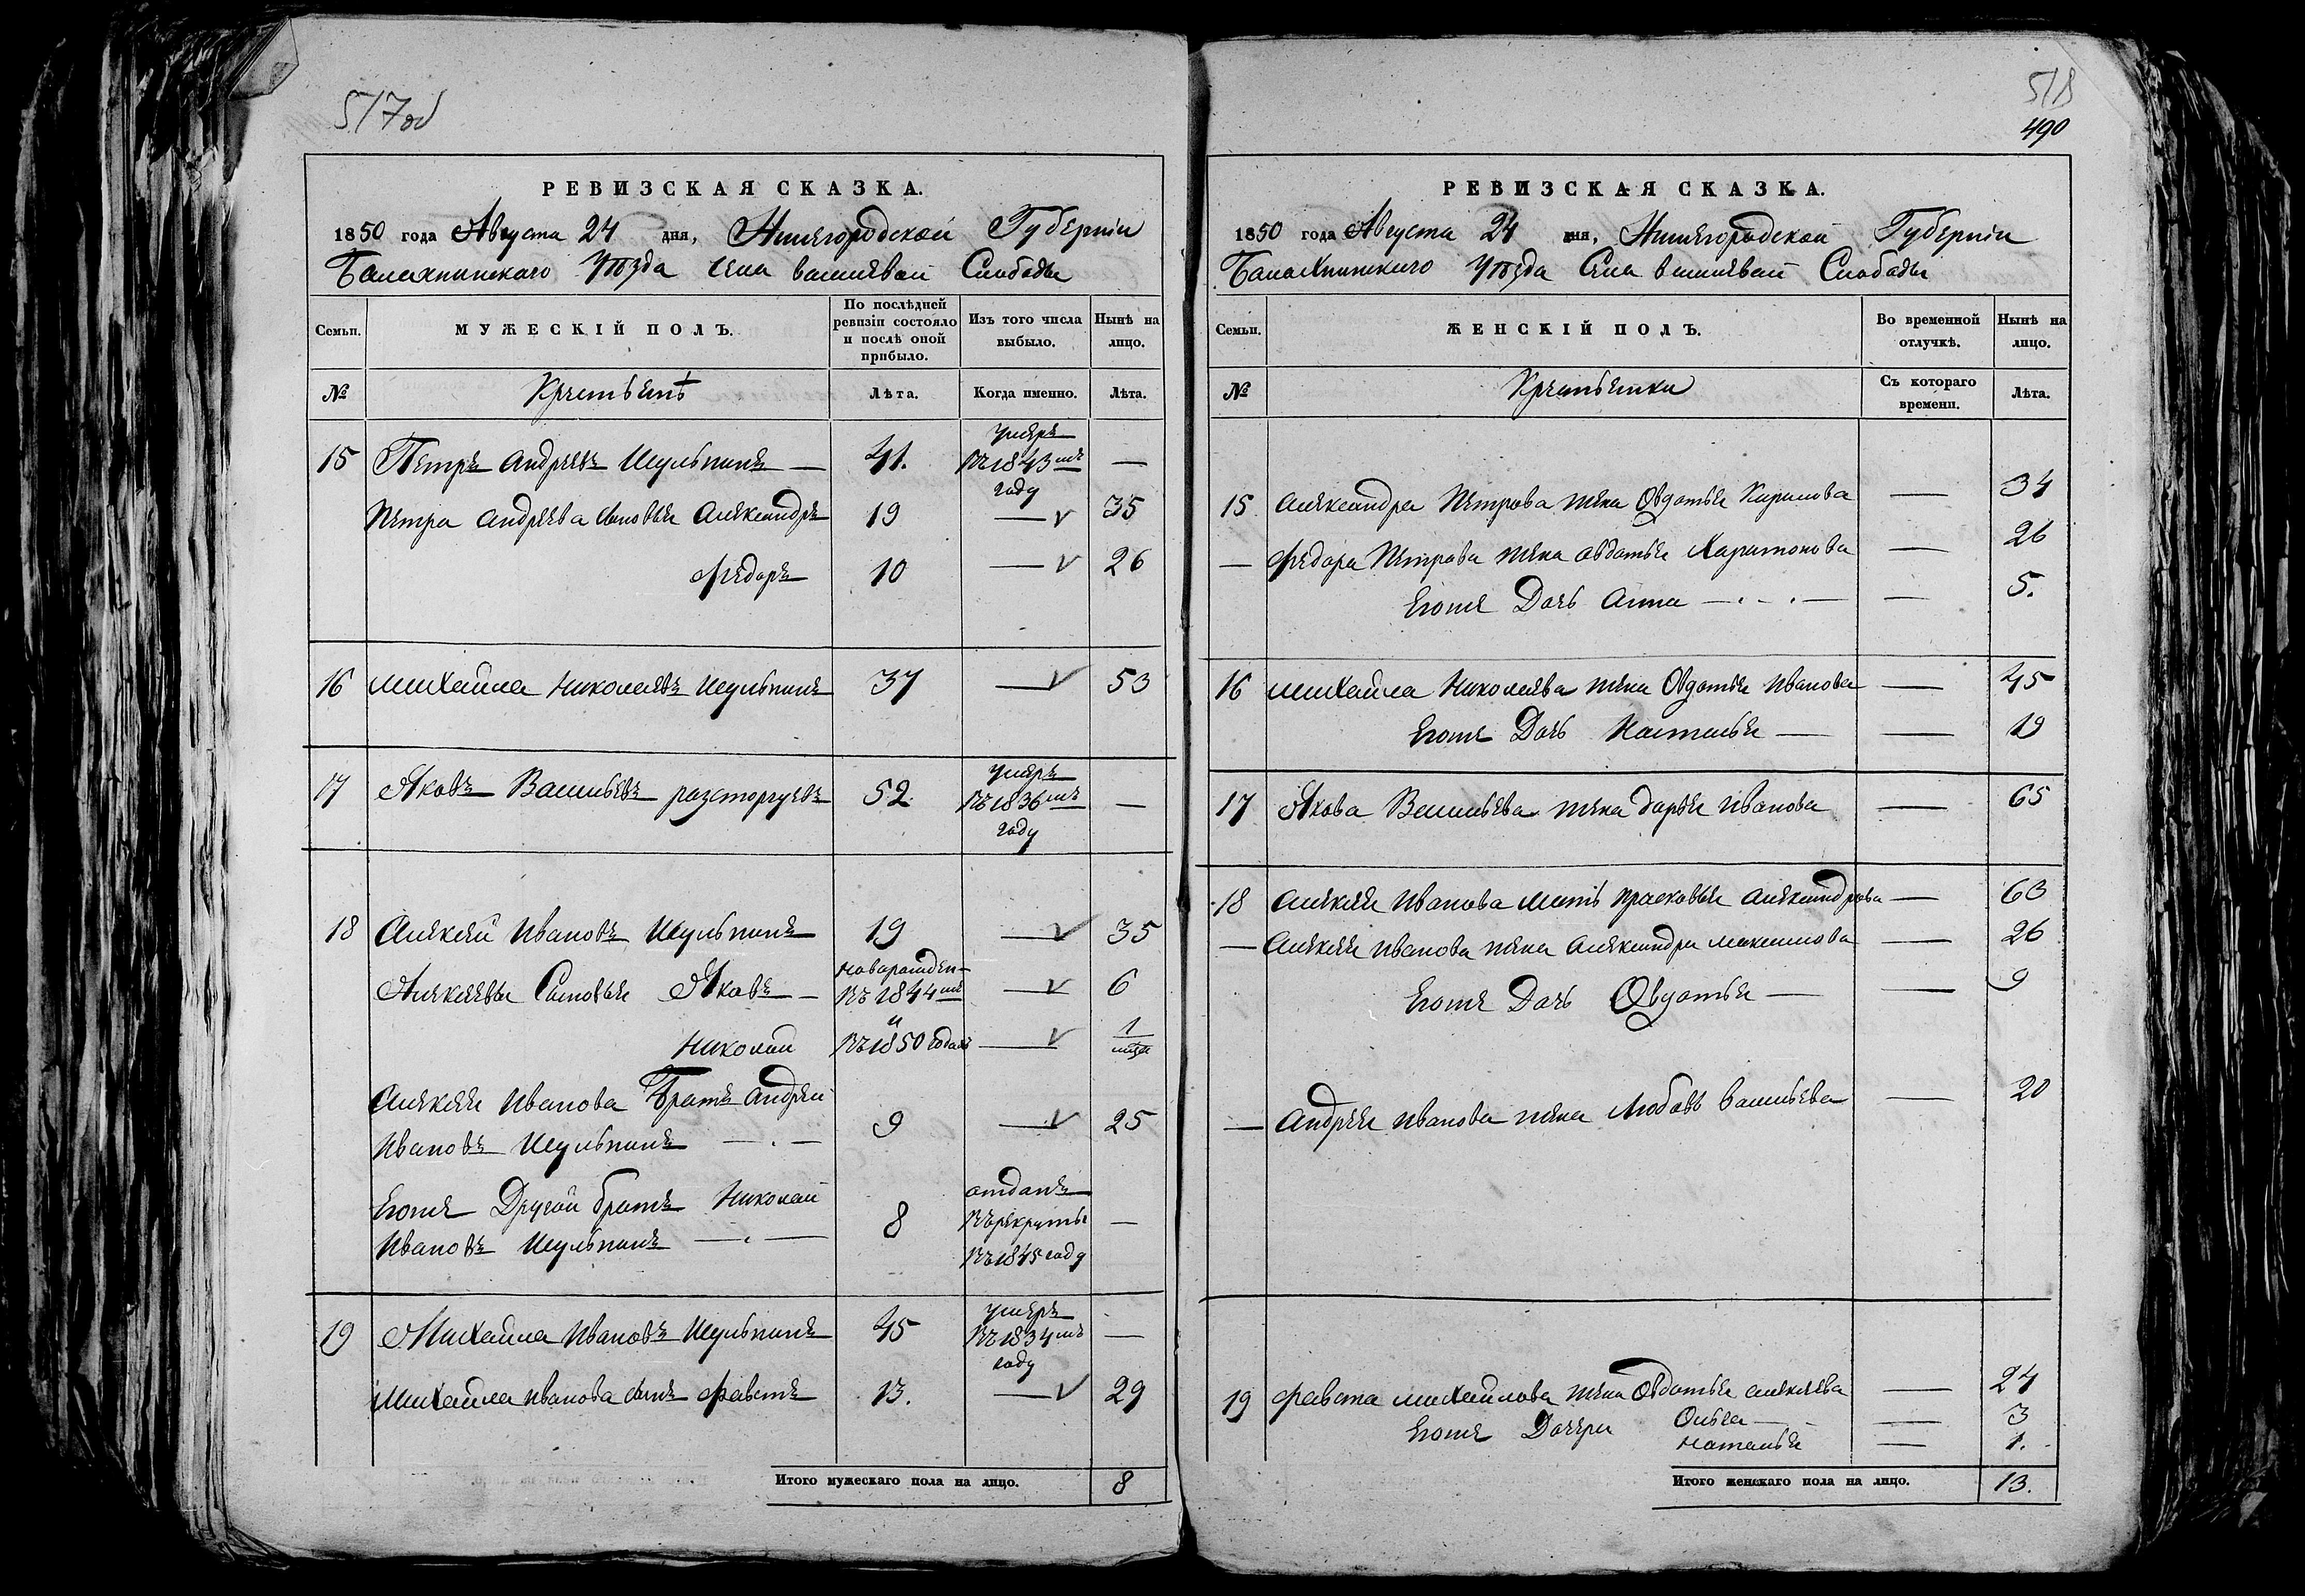 517об
РЕВИЗСКАЯ СКАЗКА.
1850 года Августа 24 дня, Нижегородской Губерніи
Балахнинскаго Уѣзда Села василевой Слободы
Семьи.
МУЖЕСКІЙ ПОЛЪ.
По послѣдней ревизіи состояло и послѣ оной прибыло.
Изъ того числа выбыло.
Нынѣ на лицо.
№
Лѣта.
Когда именно.
Лѣта.
15 Петръ андреевъ Шульпинъ — 41. умеръ въ 1843мъ году —
Петра андреева сыновья александръ 19 — √ 35
федоръ 10 — √ 26
16 михайла николаевъ шульпинъ 37 — √ 53
17 Яковъ Васильевъ разторгуевъ 52 умеръ въ 1836мъ году —
18 Алексей ивановъ Шульпинъ 19 — √ 35
Алексеевы Сыновья Яковъ — новорожден- въ 1844мъ — √ 6
и
николай въ 1850 годахъ — √ 1
алексея иванова братъ андрей
ивановъ шульпинъ — . — 9 — √ 25
Егоже Другой братъ николай
ивановъ шульпинъ — . — 8 отданъ въ рекруты въ 1845 году —
19 Михайла ивановъ шульпинъ 45 умеръ въ 1834мъ году —
михайла иванова сынъ фавстъ 13. — √ 29
Итого мужескаго пола на лицо. 8
518
490
РЕВИЗСКАЯ СКАЗКА.
1850 года Августа 24 дня, Нижегородской Губерніи
Балахнинскаго Уѣзда Села василевой Слободы
Семьи.
ЖЕНСКІЙ ПОЛЪ.
Во временной отлучкѣ.
Нынѣ на лицо.
№
Съ котораго времени.
Лѣта.
15 александра Петрова жена Овдотья Кирилова — 34
— федора Петрова жена овдотья Харитонова — 26
Егоже Дочь анна — . — . — — 5.
16 михайла николаева жена Овдотья иванова — 45
Егоже Дочь Наталья — — 19
17 Якова Васильева жена дарья иванова — 65
18 алексея иванова мать прасковья александрова — 63
— алексея иванова жена александра максимова — 26
Егоже Дочь Овдотья — — 9
— андрея иванова жена Любовь васильева — 20
19 фавста михайлова жена Овдотья алексеева — 24
Егоже Дочери Ольга — — 3
наталья — 1.
Итого женскаго пола на лицо. 13.